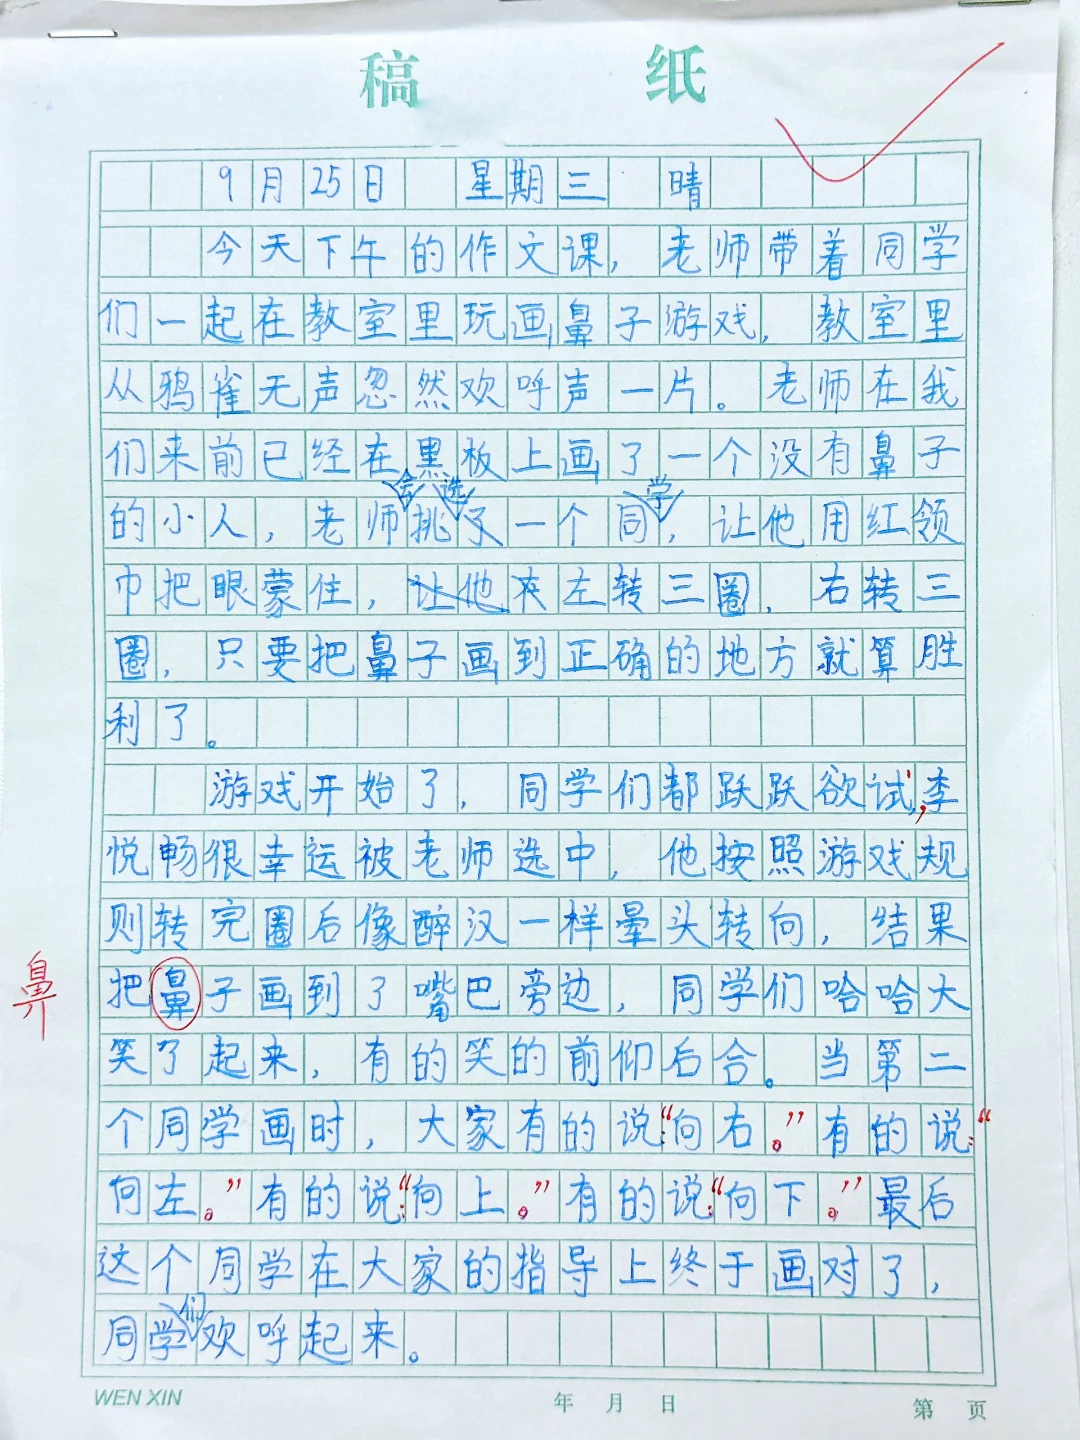 稿 纸
9月25日 星期三 晴
今天下午的作文课，老师带着同学
们一起在教室里玩画鼻子游戏，教室里
从鸦雀无声忽然欢呼声一片。老师在我
们来前已经在黑板上画了一个没有鼻子
的小人，老师会挑选一个同学，让他用红领
巾把眼蒙住，左转三圈，右转三
圈，只要把鼻子画到正确的地方就算胜
利了。
游戏开始了，同学们都跃跃欲试，李
悦畅很幸运被老师选中，他按照游戏规
则转完圈后像醉汉一样晕头转向，结果
鼻
把鼻子画到了嘴巴旁边，同学们哈哈大
笑了起来，有的笑的前仰后合。当第二
个同学画时，大家有的说：“向右。”有的说：“
向左。”有的说：“向上。”有的说：“向下。”最后
这个同学在大家的指导上终于画对了，
同学们欢呼起来。
WEN XIN 年 月 日 第 页